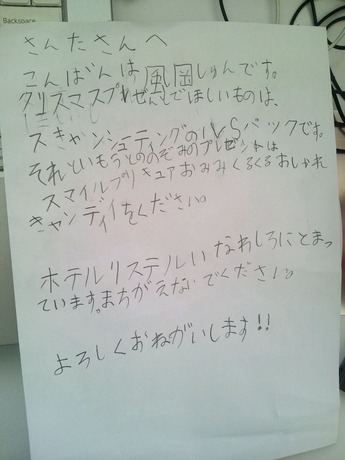 Backspace
さんたさんへ
こんばんは風岡しゅんです。
クリスマスプレぜんとでほしいものは、
スキャンシューティングのVSパックです。
それといもうとののぞみのプレゼントは
スマイルプリキュアおみみくるくるおしゃれ
キャンディをください。
ホテルリステルいなわしろにとまっ
ています。まちがえないでください。
よろしくおねがいします!!